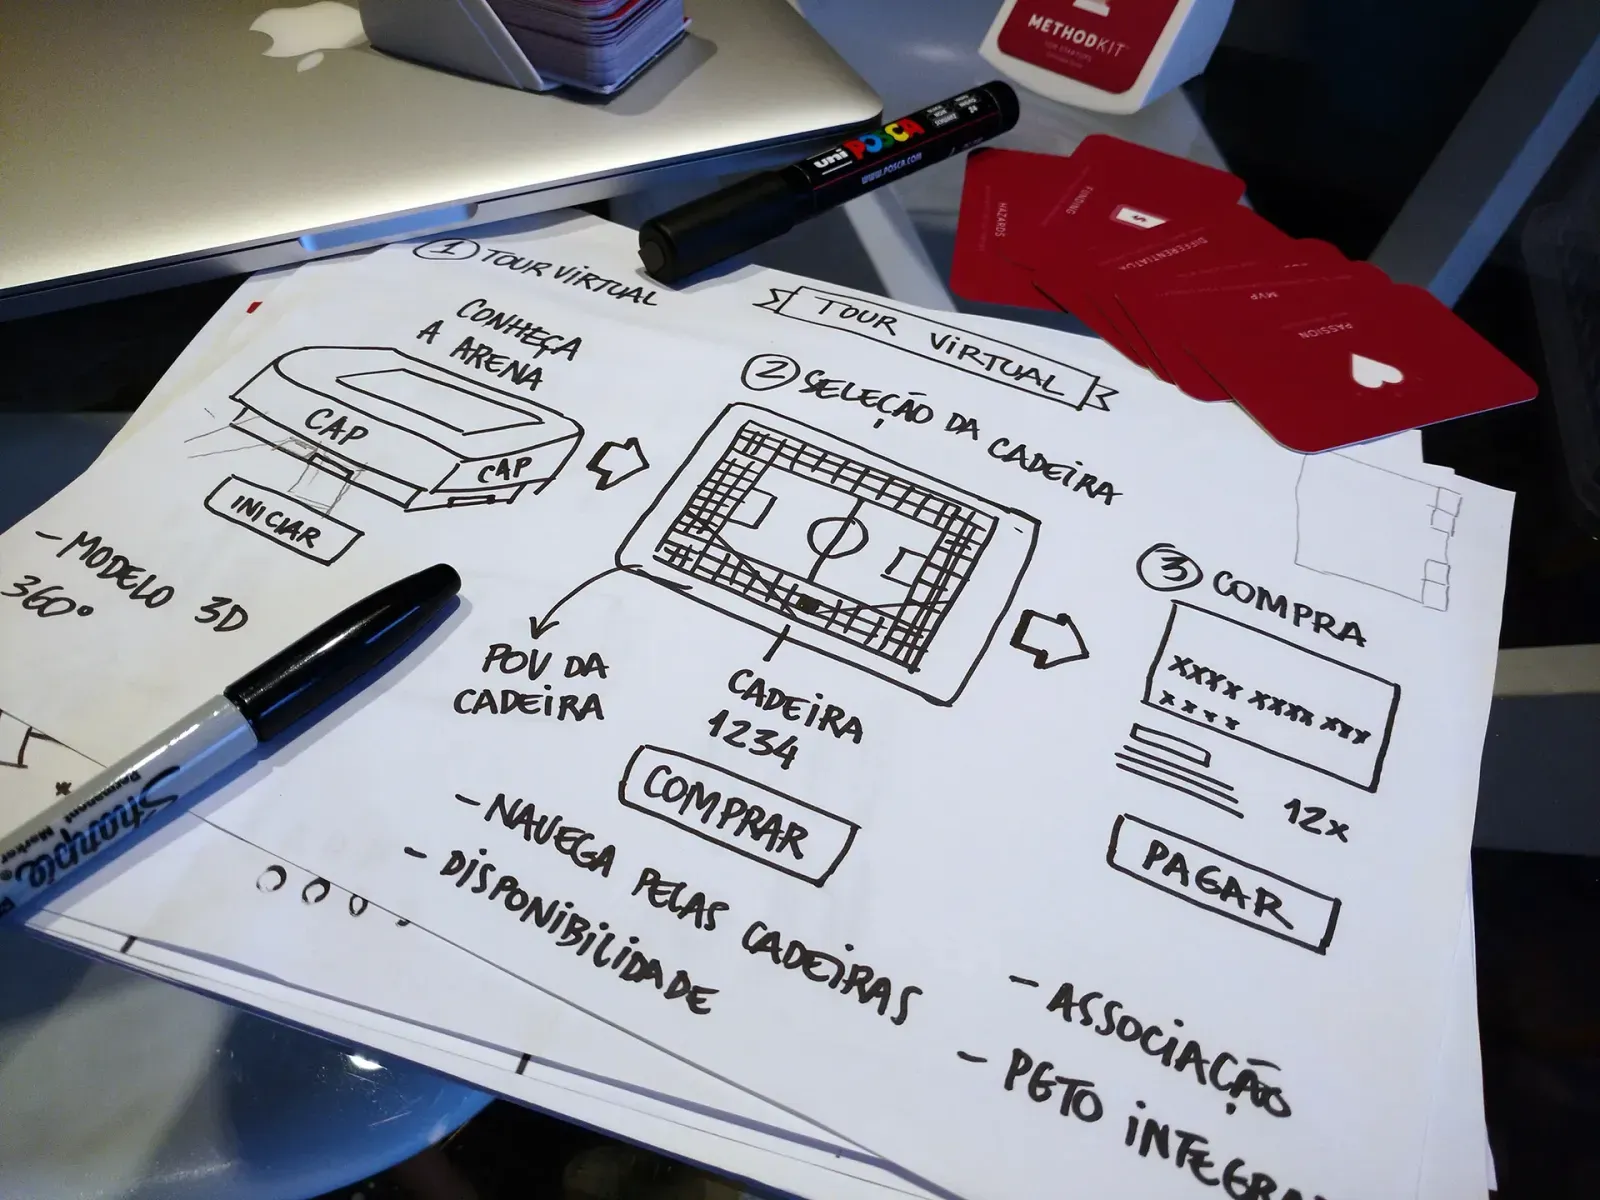 METHODKIT
FOR STARTUPS
uni POSCA
WWW.POSCA.COM
HAZARDS
FUNDING
$
DIFFERENTIATOR
MVP
PASSION
TOUR VIRTUAL
1 TOUR VIRTUAL
CONHEÇA
A ARENA
CAP
CAP
INICIAR
- MODELO 3D
360°
2 SELEÇÃO DA CADEIRA
POV DA
CADEIRA
CADEIRA
1234
COMPRAR
- NAVEGA PELAS CADEIRAS
- DISPONIBILIDADE
3 COMPRA
xxxx xxxx xxx
xxxx
12x
PAGAR
- ASSOCIAÇÃO
- PGTO INTEGRA
Sharpie
Permanent Marker